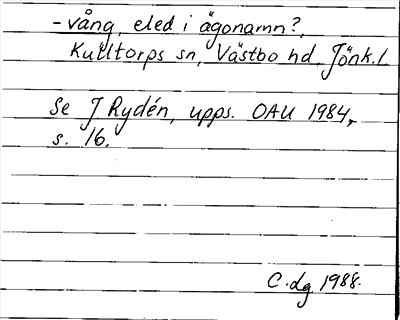 -vång, eled i ägonamn?,
Kulltorps sn, Västbo hd, Jönk.l.
Se J Rydén, upps. OAU 1984,
s. 16.
C.dg 1988.